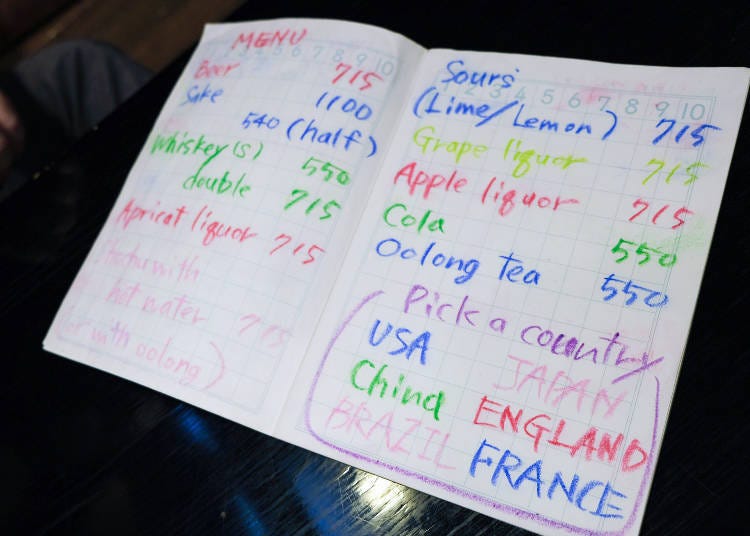 MENU
Beer 715
Sake 1100
540 (half)
Whiskey(s) 550
double 715
Apricat liquor 715
with
hot water 715
with oolong)
Sours
2 3 4 5 6 7 8 9 10
(Lime/Lemon) 715
Grape liquor 715
Apple liquor 715
Cola 550
Oolong Tea 550
Pick a country
USA JAPAN
China ENGLAND
BRAZIL FRANCE